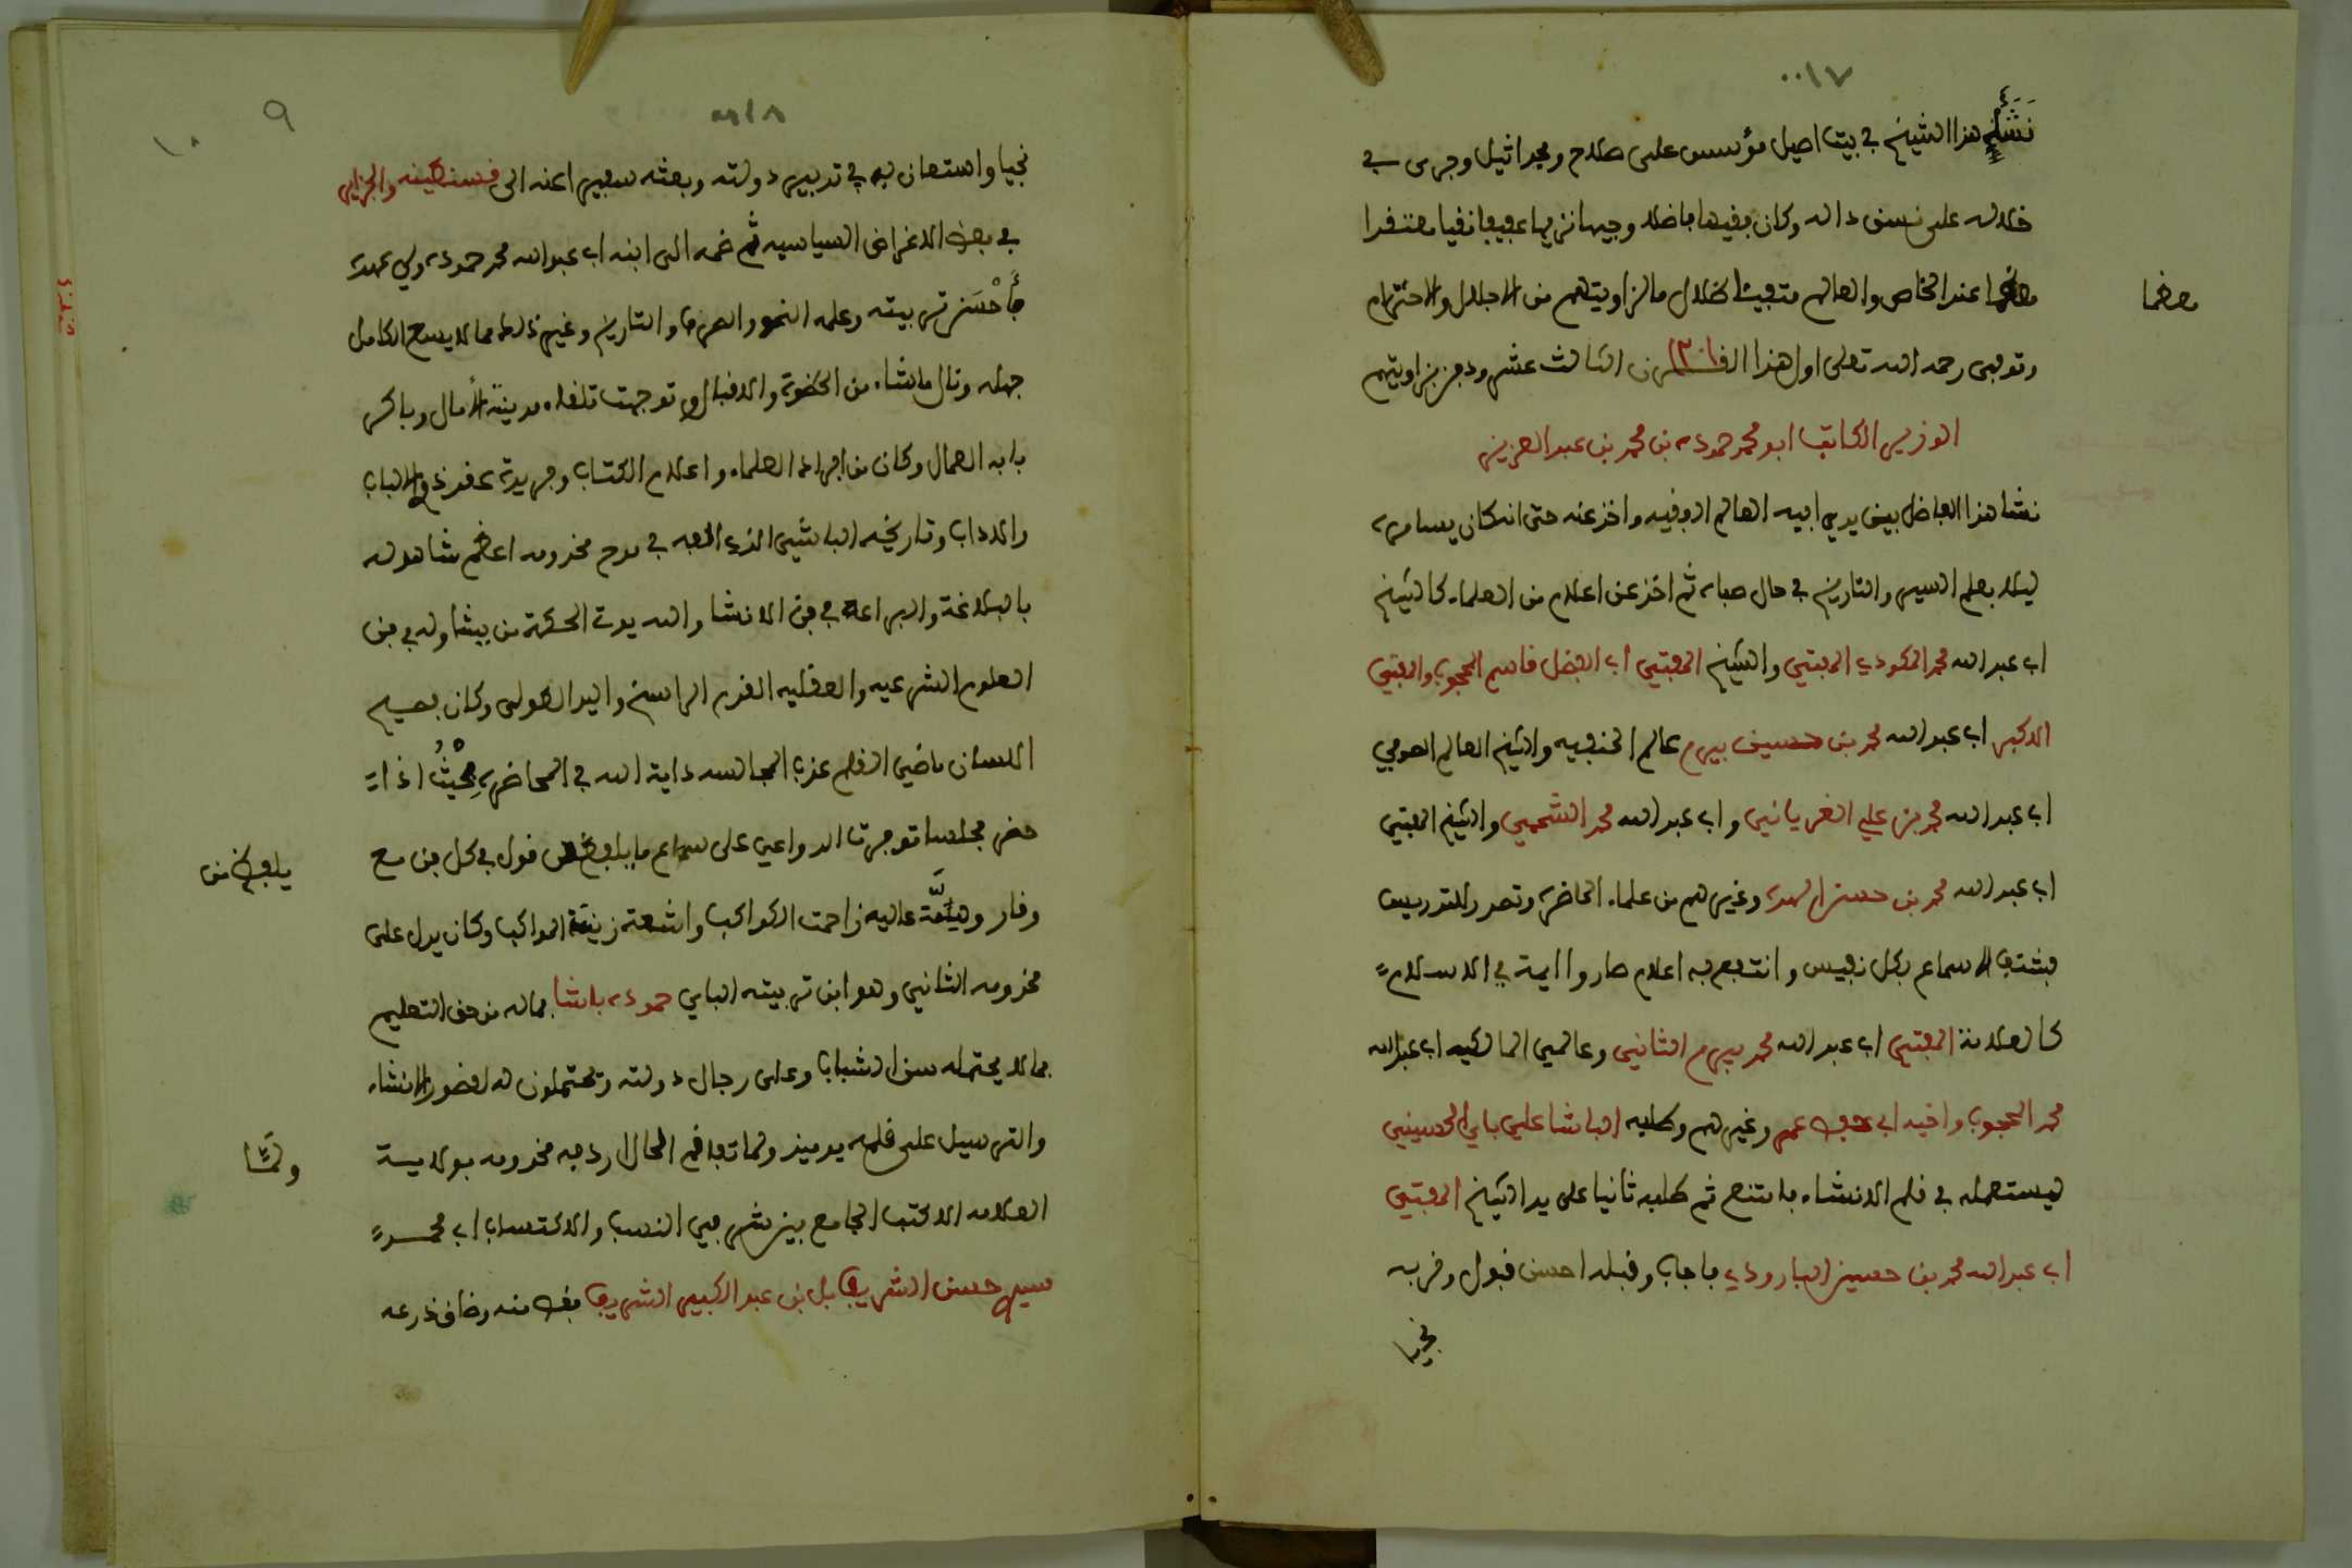 ٠٠١٧
نشأ هذا الشيخ في بيت اصيل مؤسس على صلاح ومجد اثيل وجرى في
خلاله على نسق ءاله وكان فقيها فاضلا وجيها نزيها عفيفا نقيا معتقدا
معظما عند الخاص والعام متفيئا ظلال ما لزاويتهم من الاجلال والاحترام
معظما
وتوفي رحمه الله تعلى اول هذا القرن الثالث عشر ودفن بزاويتهم
الوزير الكاتب ابو محمد حمودة بن محمد بن عبد العزيز
نشا هذا الفاضل بين يدي ابيه العالم الوفيه واخذ عنه حتى انه كان يسامره
ليلا بعلم السير والتاريخ في حال صباه ثم اخذ عن اعلام من العلماء كالشيخ
ابي عبد الله محمد المكودي المفتي والشيخ المفتي ابي الفضل قاسم المحجوب والمفتي
الاكبر ابي عبد الله محمد بن حسين بيرم عالم الحنفيه والشيخ العالم الصوفي
ابي عبد الله محمد بن علي الغرياني وابي عبد الله محمد الشحمي والشيخ المفتي
ابي عبد الله محمد بن حسن الهدة وغيرهم من علماء الحاضرة وتصدر للتدريس
فشنف الاسماع بكل نفيس وانتفع به اعلام صاروا ايمة في الاسلام
كالعلامة المفتي ابي عبد الله محمد بيرم الثاني وعالمي المالكيه ابي عبد الله
محمد المحجوب واخيه ابي حفص عمر وغيرهم وطلبه الباشا علي باي الحسيني
ليستعمله في قلم الانشاء فامتنع ثم طلبه ثانيا على يد الشيخ المفتي
ابي عبد الله محمد بن حسين البارودي فاجاب وقبله احسن قبول وقربه
نجيا
٠٠١٨
٩
١٠
نجيا واستعان به في تدبير دولته وبعثه سفيرا عنه الى قسنطينه والجزاير
في بعض الاغراض السياسيه ثم ضمه الى ابنه ابي عبد الله محمد حمودة ولي عهده
فأحسن تربيته وعلمه النحو والصرف والتاريخ وغير ذلك مما لا يسع الكامل
جهله ونال ما شاء من الحظوة والاقبال وتوجهت تلقاء مدينة الأمال وباكر
بابه العمال وكان من افراد العلماء واعلام الكتاب وفريدة عقد ذوي الالباب
والاداب وتاريخه الباشي الذي الفه في مدح مخدومه اعظم شاهد له
بالبلاغة والبراعة في فن الانشا والله يوتي الحكمة من يشا وله في فن
العلوم الشرعيه والعقليه القدم الراسخ واليد الطولى وكان فصيح
اللسان ماضي القلم عذب المجالسه داية الله في المحاضرة بحيث اذا
حضر مجلسا توفرت الدواعي على سماع ما يلفظ من قول في كل فن مع
يلفظ من
وقار وهيئة عاليه زاحمت الكواكب واشعة زينة المواكب وكان يدل على
مخدومه الثاني وهو ابن تربيته الباي حمودة باشا بماله من حق التعليم
بما لا يحتمله سن الشباب وعلى رجال دولته ويحتملون له لقصور الانشاء
والترسيل على قلمه يوميذ ولما تفاقم الحال اردفه مخدومه بولاية
ولمّا
العلامه الاكتب الجامع بين شرفي النسب والاكتساب ابي محمد
سيدي حسن الشريف بل بن عبد الكبير الشريف فغص منه وضاق ذرعه